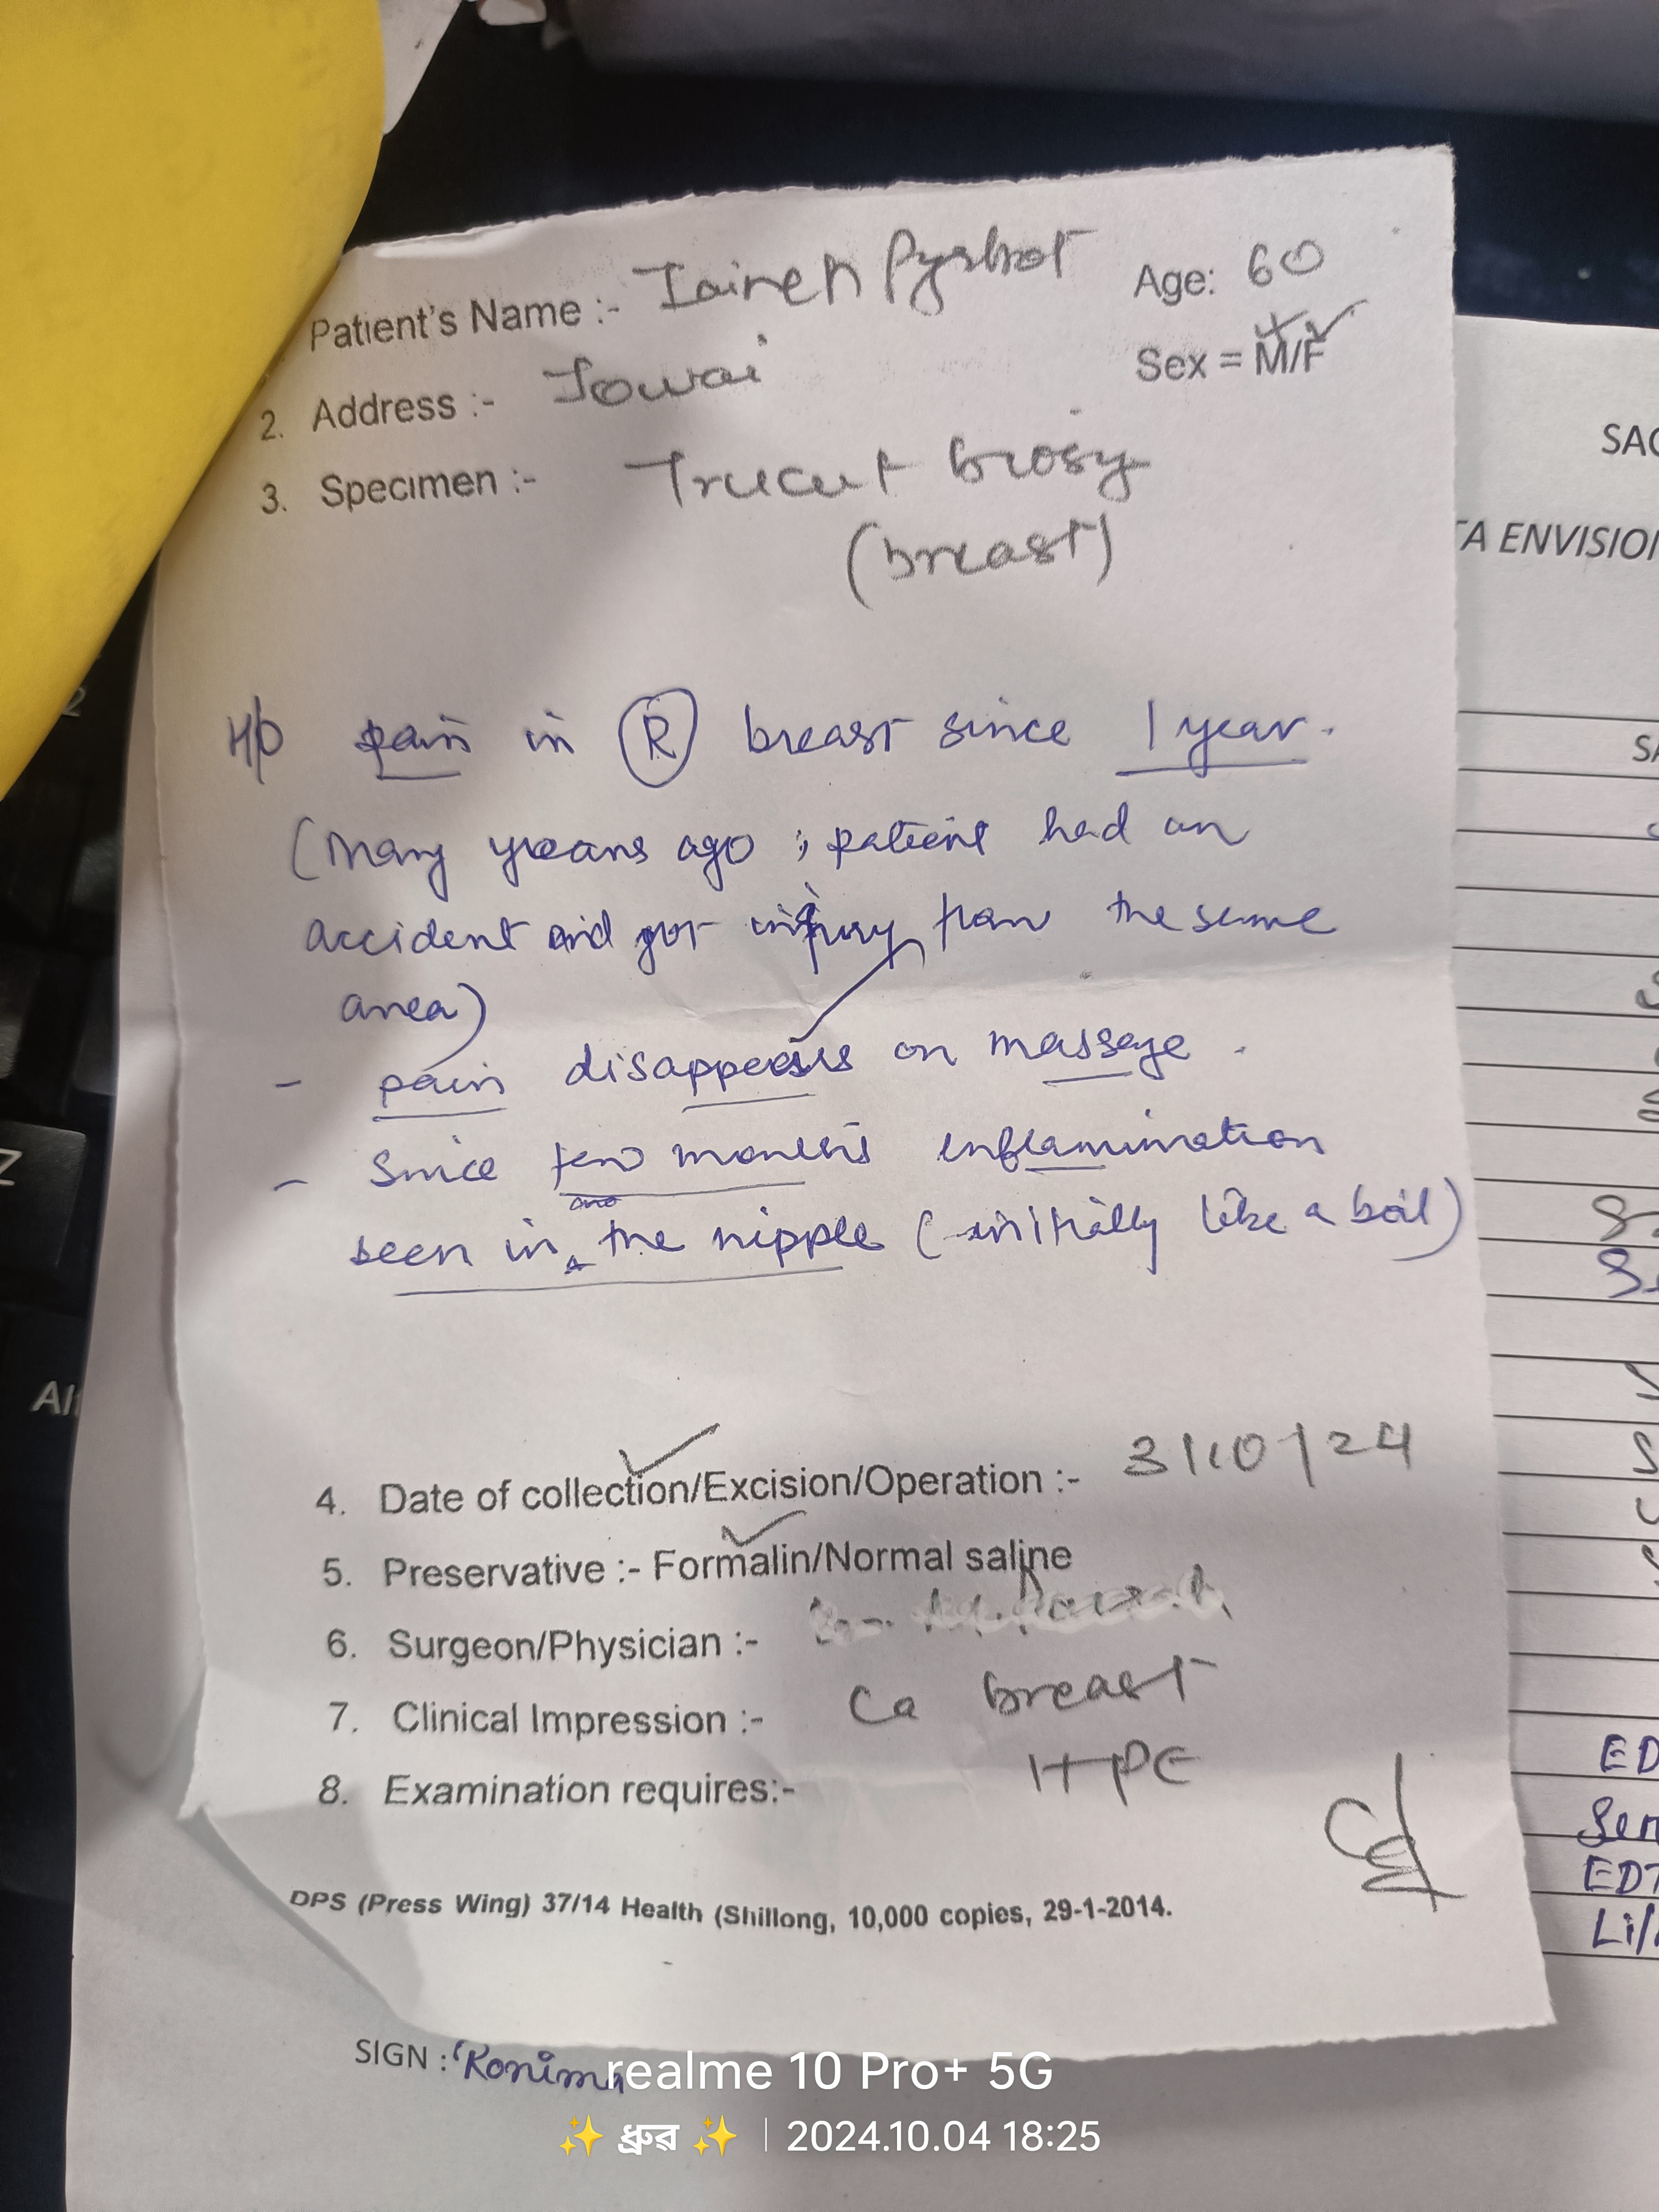 Patient's Name :- Iaineh Pyrbot Age: 60
Sex = M/F
2. Address :- Jowai
3. Specimen :- Trucut biosy
(breast)
H/O pain in R breast since 1 year.
(Many years ago ; patient had an
accident and got injury from the same
area)
- pain disappears on massage.
- Since few months inflammation
and
seen in the nipple (initially like a boil)
4. Date of collection/Excision/Operation :- 3/10/24
5. Preservative :- Formalin/Normal saline
6. Surgeon/Physician :-
7. Clinical Impression :- Ca breast
8. Examination requires:- HPE
DPS (Press Wing) 37/14 Health (Shillong, 10,000 copies, 29-1-2014.
SIGN :
TA ENVISION
ED
Ser
EDT
Li/
Alt
Z
realme 10 Pro+ 5G
✨ ধ্রুৱ ✨ | 2024.10.04 18:25